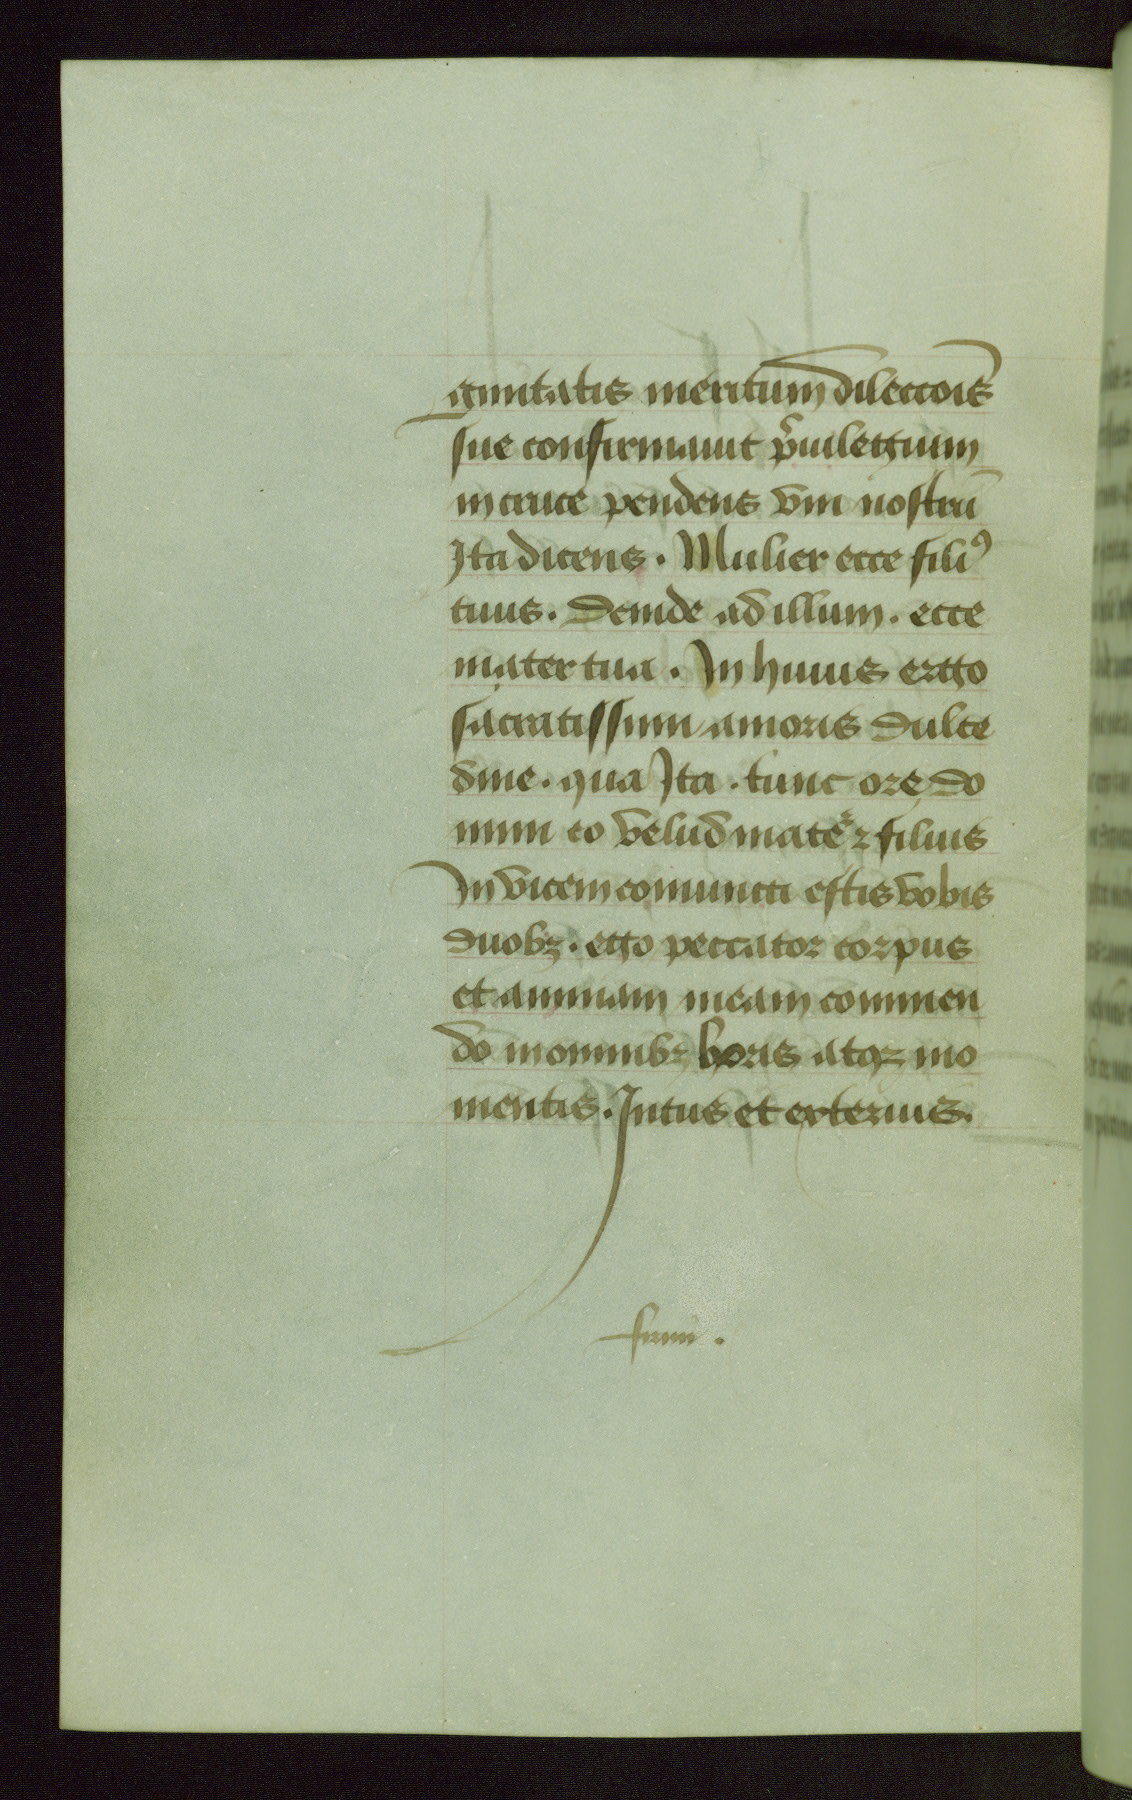 ginitatis meritum dileccōis
sue confirmauit pͥuilegium
in cruce pendens vni nostrū
Ita dicens . Mulier ecce filiꝰ
tuus . Deinde ad illum . ecce
mater tua . In huius ergo
sacratissimi amoris dulce
dine . qua Ita . tunc ore do
mini co velud mate᷑ ⁊ filius
In vicem coniuncti estis vobis
duobꝫ . ego peccator corpus
et animam meam commen
do in omnibꝫ horis atqꝫ mo
mentis . Intus et exterius .